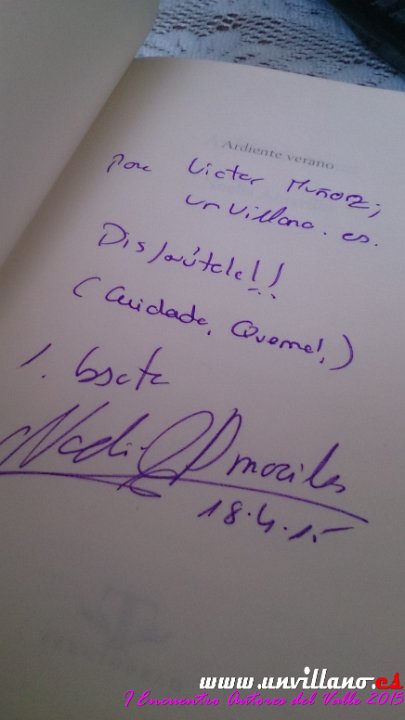 Ardiente verano
para Victor Muñoz;
unvillano.es.
Disfrútele!!
(Cuidado, Quema!,)
1. beseta
18.4.15
www.unvillano.es
I Encuentro Autores del Valle 2015